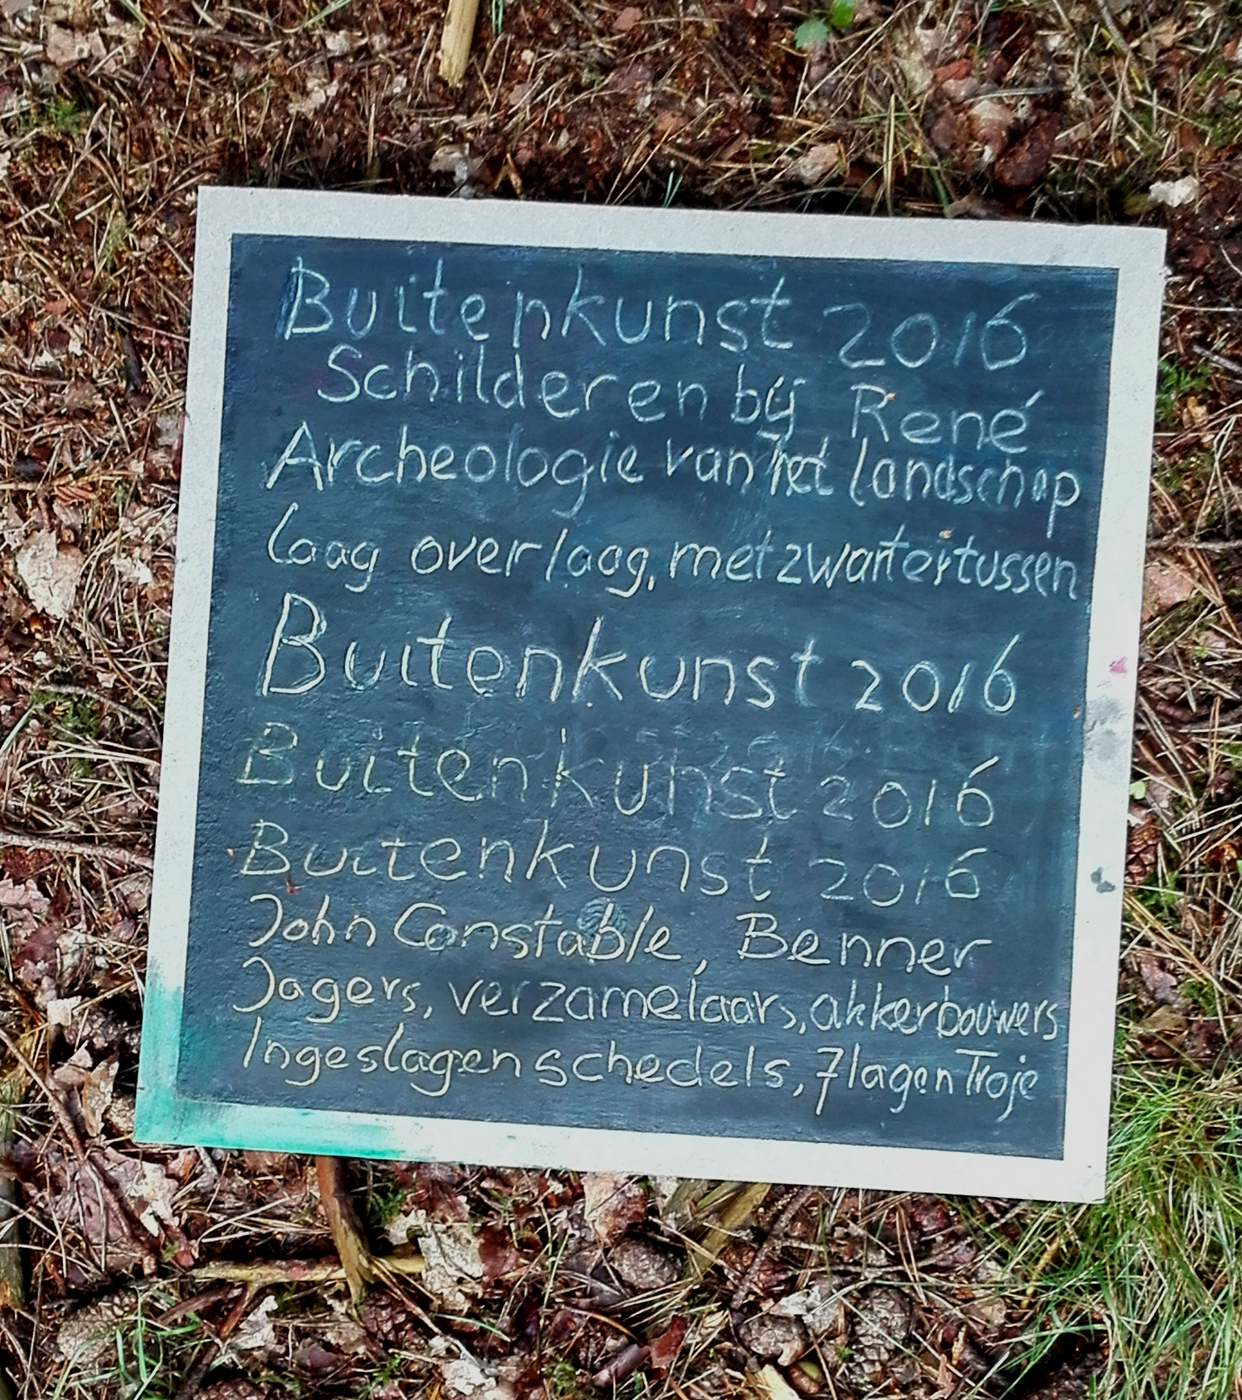 Buitenkunst 2016
Schilderen bij René
Archeologie van het landschap
laag over laag, met zwart ertussen
Buitenkunst 2016
Buitenkunst 2016
Buitenkunst 2016
John Constable, Benner
Jagers, verzamelaars, akkerbouwers
Ingeslagen schedels, 7 lagen Troje